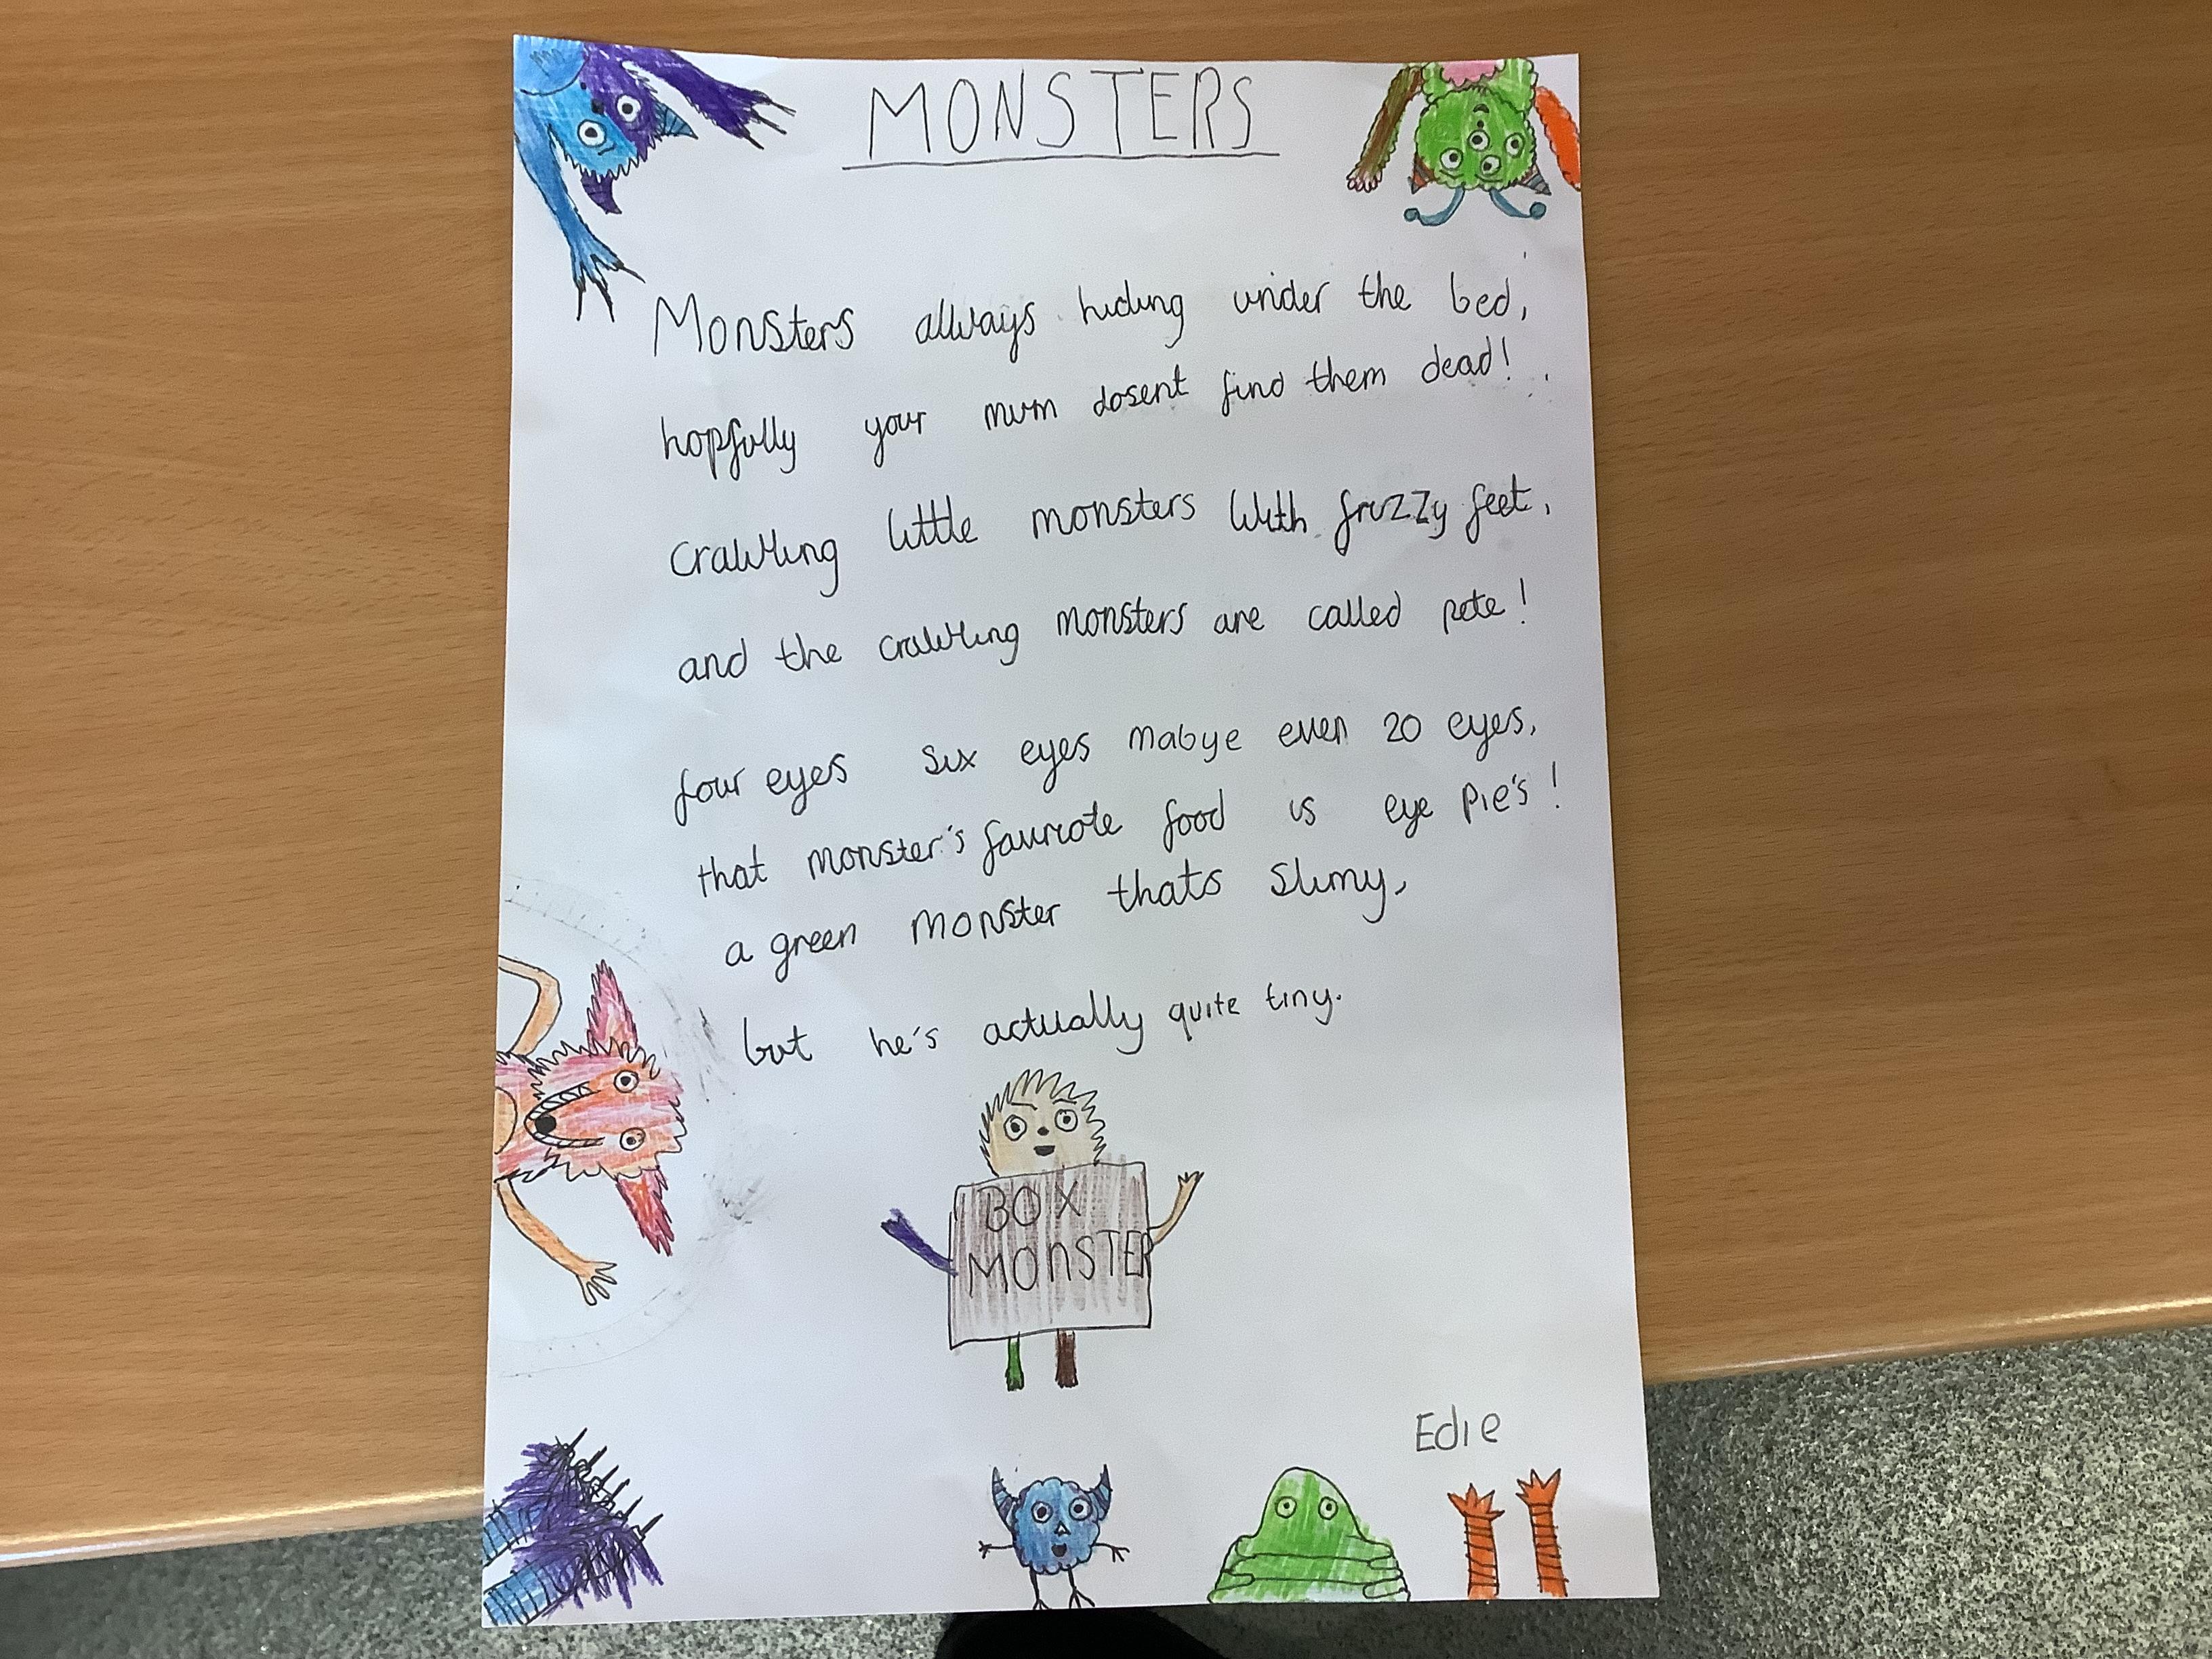 MONSTERS
Monsters allways hiding under the bed,
hopfully your mum dosent find them dead!
Crawlling little monsters with frizzy feet,
and the crawlling monsters are called pete!
four eyes six eyes mabye even 20 eyes,
that monster's fauriote food is eye pie's!
a green monster thats slimy,
but he's actually quite tiny.
BOX
MONSTER
Edie